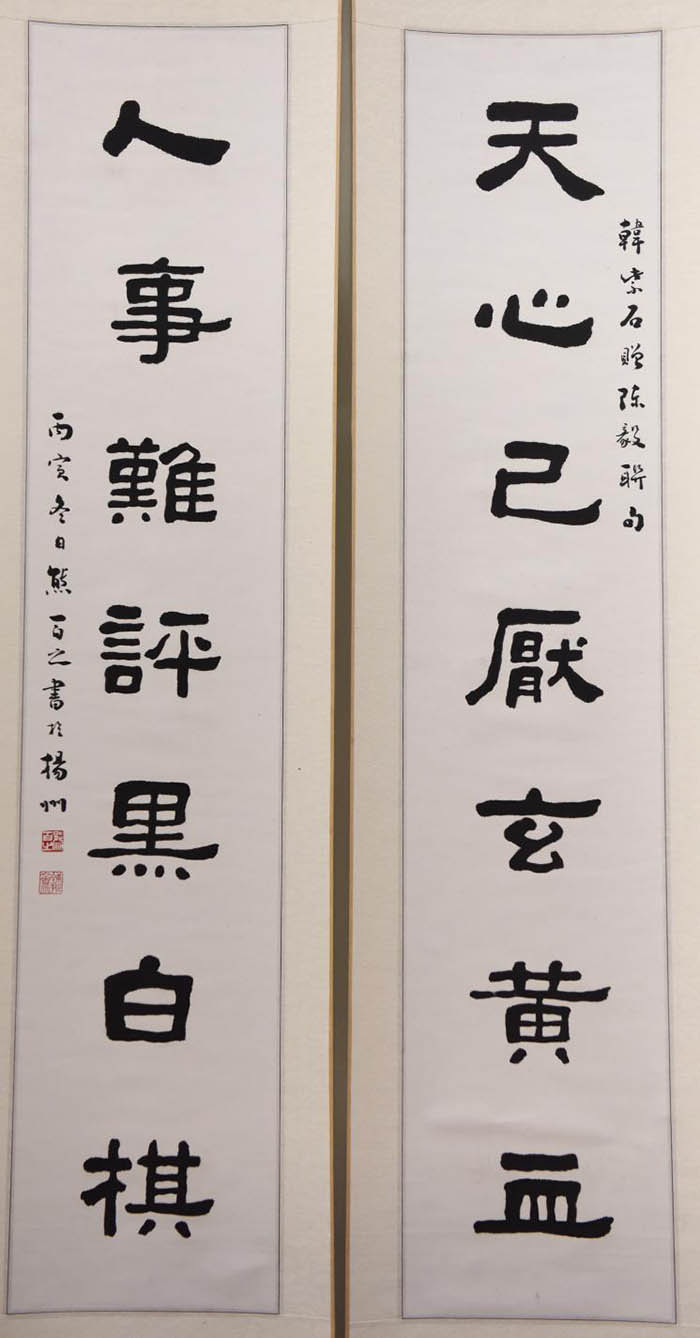 天心已厭玄黄血
韓紫石贈陈毅聯句
人事難評黑白棋
丙寅冬日熊百之書於揚州